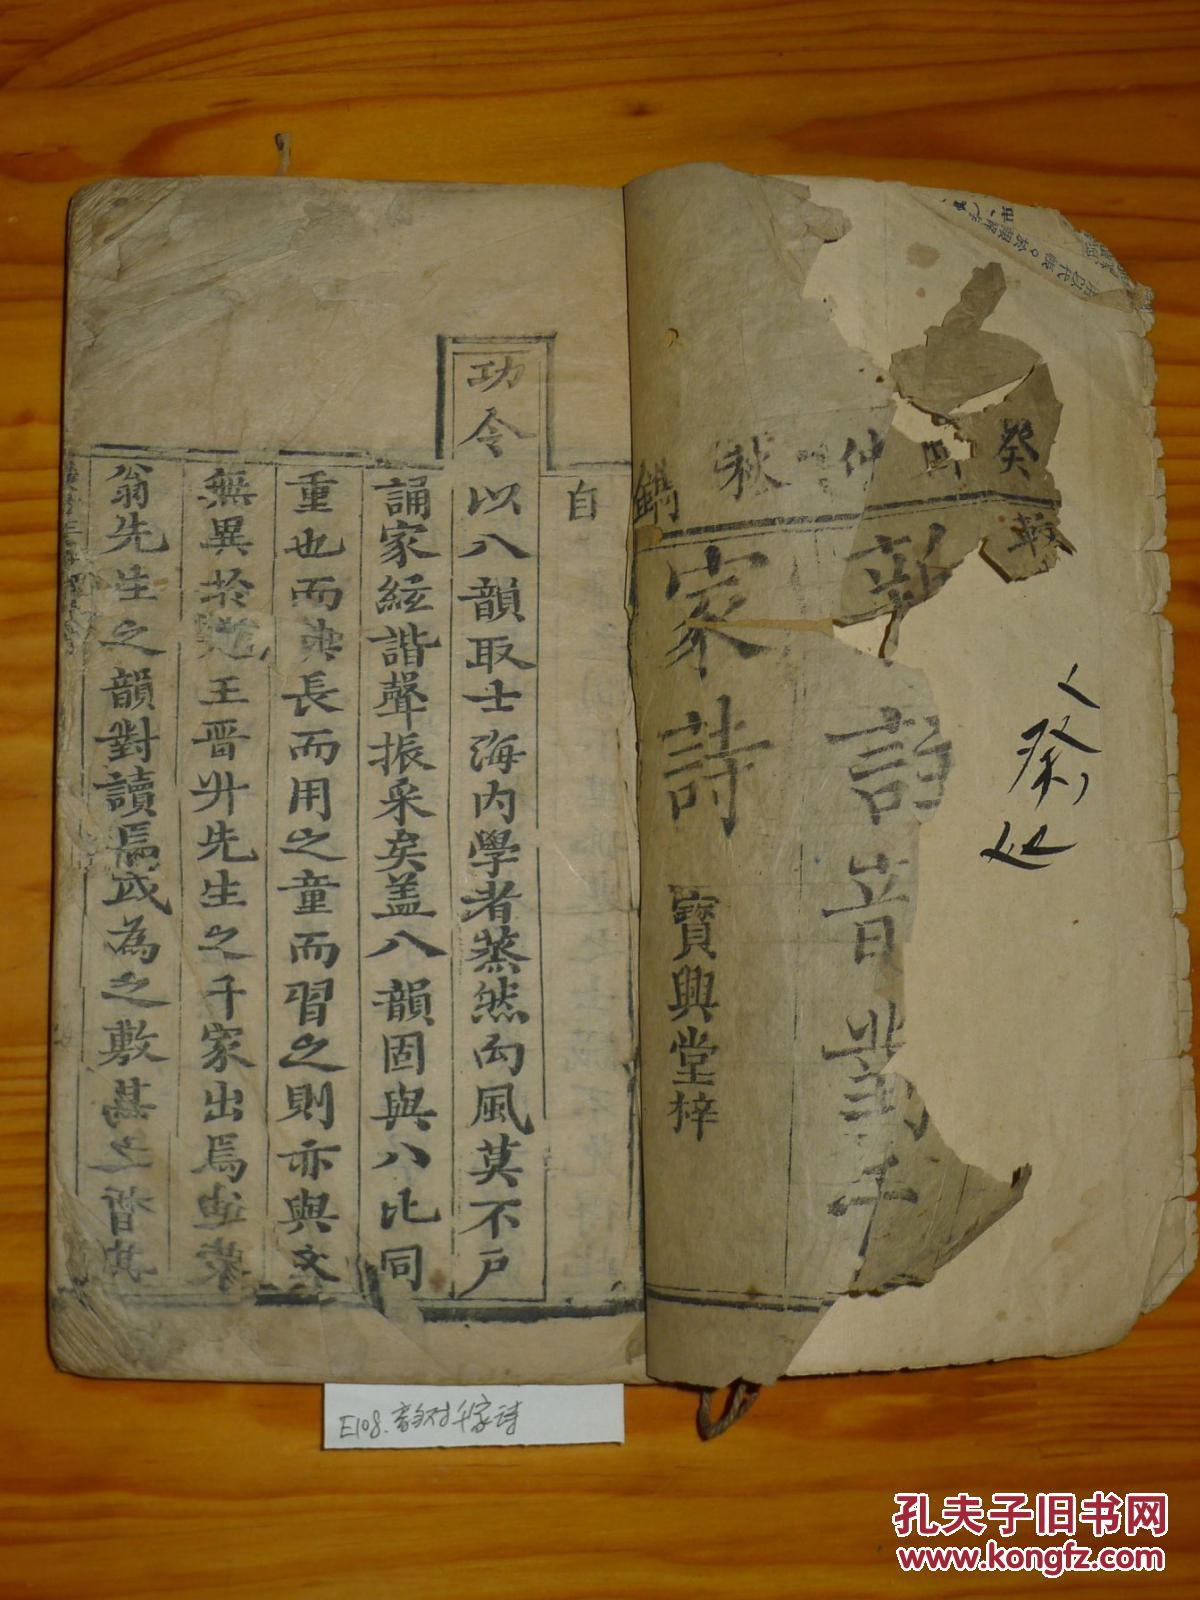 癸
仲秋
鐫
新
註音
千
家詩
寶興堂梓
自
功令
以八韻取士海内學者蒸然向風莫不戶
誦家絃諧聲振采矣盖八韻固與八比同
重也而長而用之童而習之則亦與文
無異於王晋升先生之千家出焉
翁先生之韻對讀焉或為之敷甚之
E108.韵对千家诗
孔夫子旧书网
www.kongfz.com